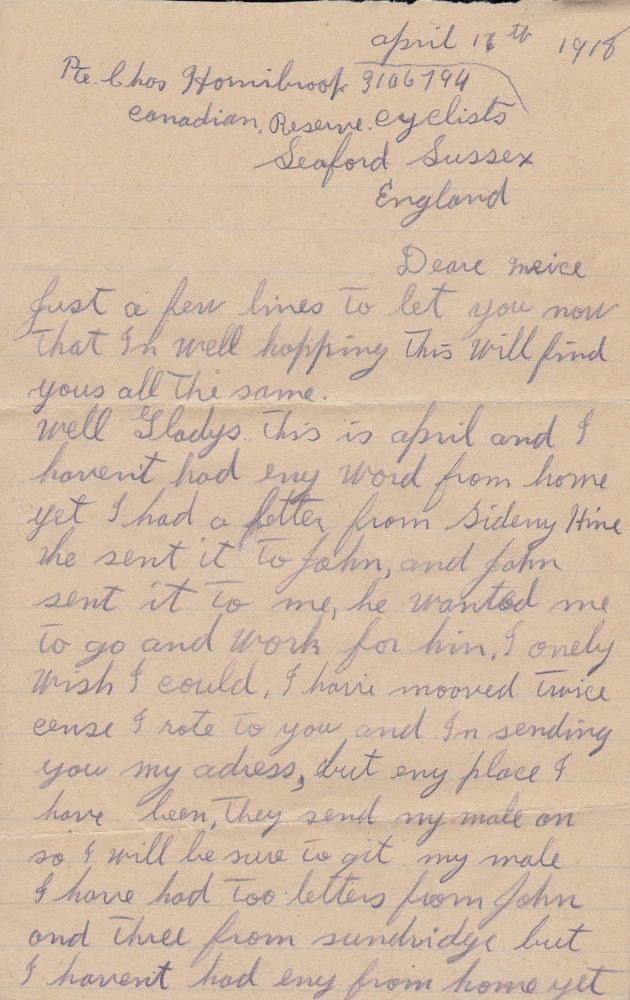 april 17th 1918
Pte. Chas Hornibrook 3106794
Canadian, Reserve. Cyclists
Seaford Sussex
England
Deare neice
Just a few lines to let you now
that Im well hopping this will find
yous all the same.
Well Gladys this is april and I
havent had eny word from home
yet I had a letter from Sideny Hine
he sent it to John, and John
sent it to me, he wanted me
to go and work for him, I onely
wish I could, I have mooved twice
cense I rote to you and Im sending
you my adress, but eny place I
have been, they send my male on
so I will be sure to git my male
I have had too letters from John
and three from sundridge but
I havent had eny from home yet